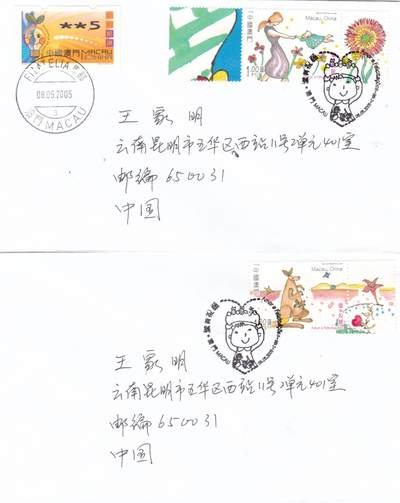 **5
中國澳門 MACAU
CHINA
FILATELIA
08.05.2005
澳門 MACAU
中國澳門
Macau, China
1.00
澳門 MACAU
王家明
云南昆明市五华区西站11号2单元401室
邮编650031
中国
中國澳門
Macau, China
澳門 MACAU
王家明
云南昆明市五华区西站11号2单元401室
邮编650031
中国